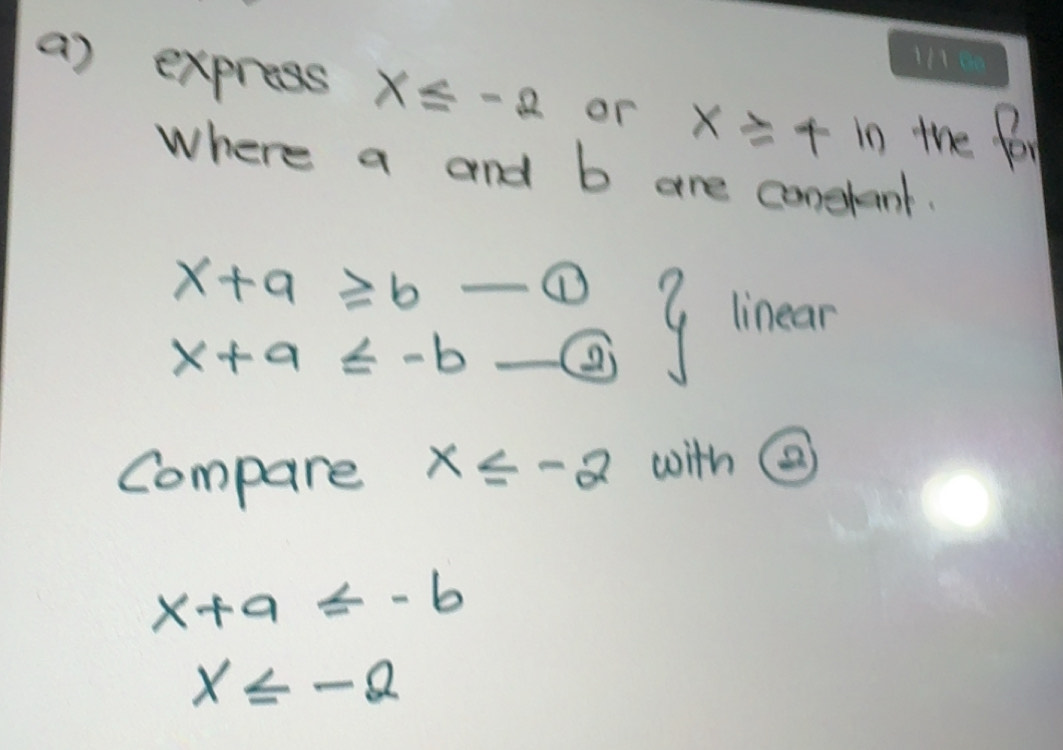 a) express x ≤ -2 or x ≥ 7 in the
where a and b are constant.
x+a ≥ b — ①
x+a ≤ -b — ②
} linear
Compare x ≤ -2 with ②
x+a ≤ -b
x ≤ -2